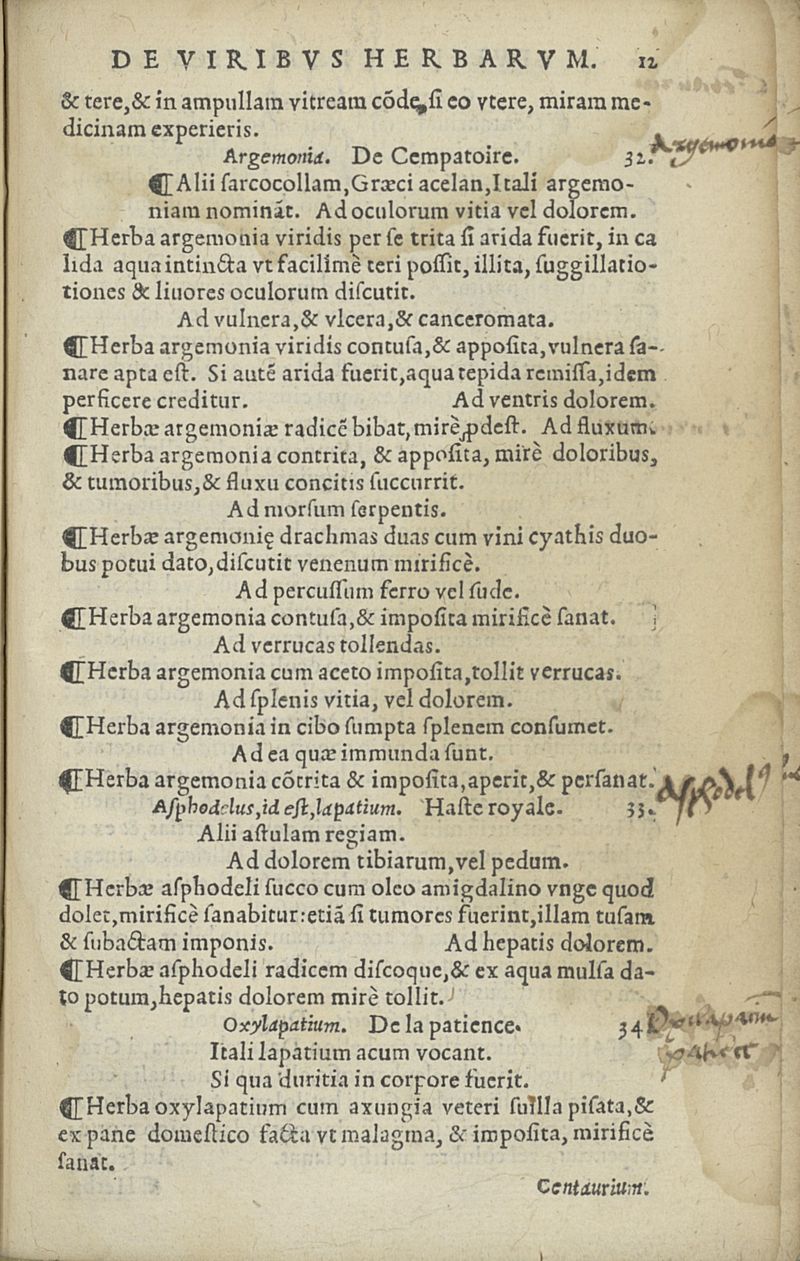 DE VIRIBVS HERBARVM. 12
& tere, & in ampullam vitream cõde, si eo vtere, miram me-
dicinam experieris.
Argemonia. De Cempatoire. 32.
Argemonia
¶ Alii sarcocollam, Græci acelan, Itali argemo-
niam nominãt. Ad oculorum vitia vel dolorem.
¶ Herba argemonia viridis per se trita si arida fuerit, in ca
lida aqua intincta vt facilimè teri possit, illita, suggillatio-
tiones & liuores oculorum discutit.
Ad vulnera, & vlcera, & canceromata.
¶ Herba argemonia viridis contusa, & apposita, vulnera sa-
nare apta est. Si autẽ arida fuerit, aqua tepida remissa, idem
perficere creditur. Ad ventris dolorem.
¶ Herbæ argemoniæ radicẽ bibat, mirè ꝓdest. Ad fluxum.
¶ Herba argemonia contrita, & apposita, mirè doloribus,
& tumoribus, & fluxu concitis succurrit.
Ad morsum serpentis.
¶ Herbæ argemonię drachmas duas cum vini cyathis duo-
bus potui dato, discutit venenum mirificè.
Ad percussum ferro vel sude.
¶ Herba argemonia contusa, & imposita mirificè sanat.
Ad verrucas tollendas.
¶ Herba argemonia cum aceto imposita, tollit verrucas.
Ad splenis vitia, vel dolorem.
¶ Herba argemonia in cibo sumpta splenem consumet.
Ad ea quæ immunda sunt.
¶ Herba argemonia cõtrita & imposita, aperit, & persanat.
Asphodelus, id est, lapatium. Haste royale. 33.
Alii astulam regiam.
Ad dolorem tibiarum, vel pedum.
¶ Herbæ asphodeli succo cum oleo amigdalino vnge quod
dolet, mirificè sanabitur: etiã si tumores fuerint, illam tusam
& subactam imponis. Ad hepatis dolorem.
¶ Herbæ asphodeli radicem discoque, & ex aqua mulsa da-
to potum, hepatis dolorem mirè tollit.
Oxylapatium. De la patience. 34
Itali lapatium acum vocant.
Si qua duritia in corpore fuerit.
¶ Herba oxylapatium cum axungia veteri suilla pisata, &
ex pane domestico facta vt malagma, & imposita, mirificè
sanat.
Centaurium.